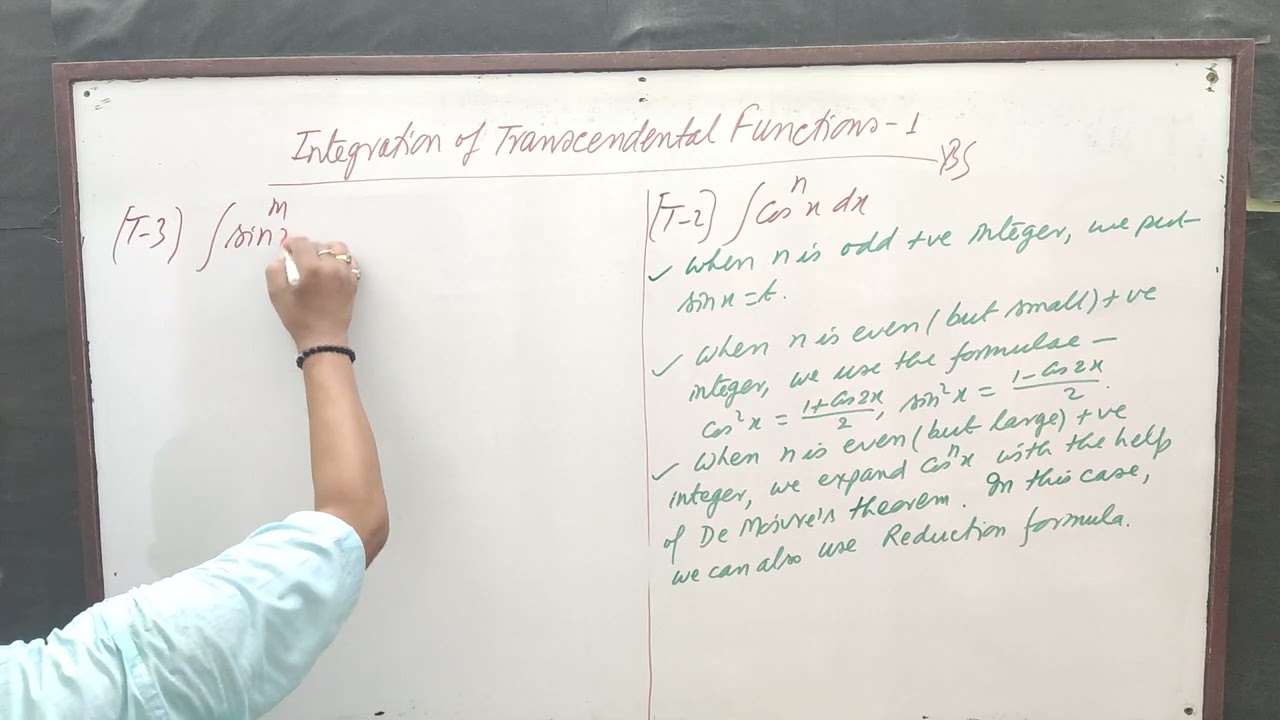 Integration of Transcendental Functions - 1
BS
(T-3) ∫ sin^m x
(T-2) ∫ cos^n x dx
✓ when n is odd +ve integer, we put
sin x = t.
✓ when n is even (but small) +ve
integer, we use the formulae –
cos²x = (1+cos2x)/2, sin²x = (1-cos2x)/2.
✓ when n is even (but large) +ve
integer, we expand cos^n x with the help
of De Moivre's theorem. In this case,
we can also use Reduction formula.